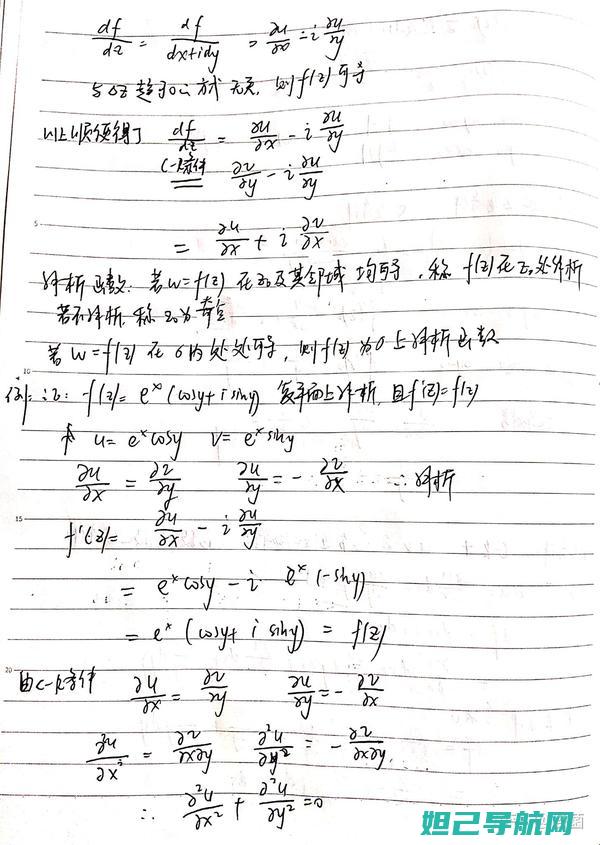 df/dz = df/(dx+idy) = ∂u/∂x - i ∂u/∂y
与Δz趋于0的方式无关，则f(z)可导
以上顺便得了 df/dz = ∂u/∂x - i ∂u/∂y
C-R条件 ∂v/∂y - i ∂u/∂y
5
= ∂u/∂x + i ∂v/∂x
解析函数：若w=f(z)在z₀及其邻域均可导，称f(z)在z₀处解析
若不解析，称z₀为奇点
若w=f(z)在σ内处处可导，则f(z)为σ上解析函数
10
例：证：f(z)=eˣ(cosy+isiny) 复平面上解析，且f'(z)=f(z)
u=eˣcosy v=eˣsiny
∂u/∂x = ∂v/∂y ∂u/∂y = -∂v/∂x ∴解析
15
f'(z)= ∂u/∂x - i ∂u/∂y
= eˣcosy - i eˣ(-siny)
= eˣ(cosy+ i siny) = f(z)
20
由C-R条件 ∂u/∂x = ∂v/∂y ∂u/∂y = -∂v/∂x
∂²u/∂x² = ∂v/∂x∂y ∂²u/∂y² = -∂v/∂x∂y
∴ ∂²u/∂x² + ∂²u/∂y² =0
妲己导航网